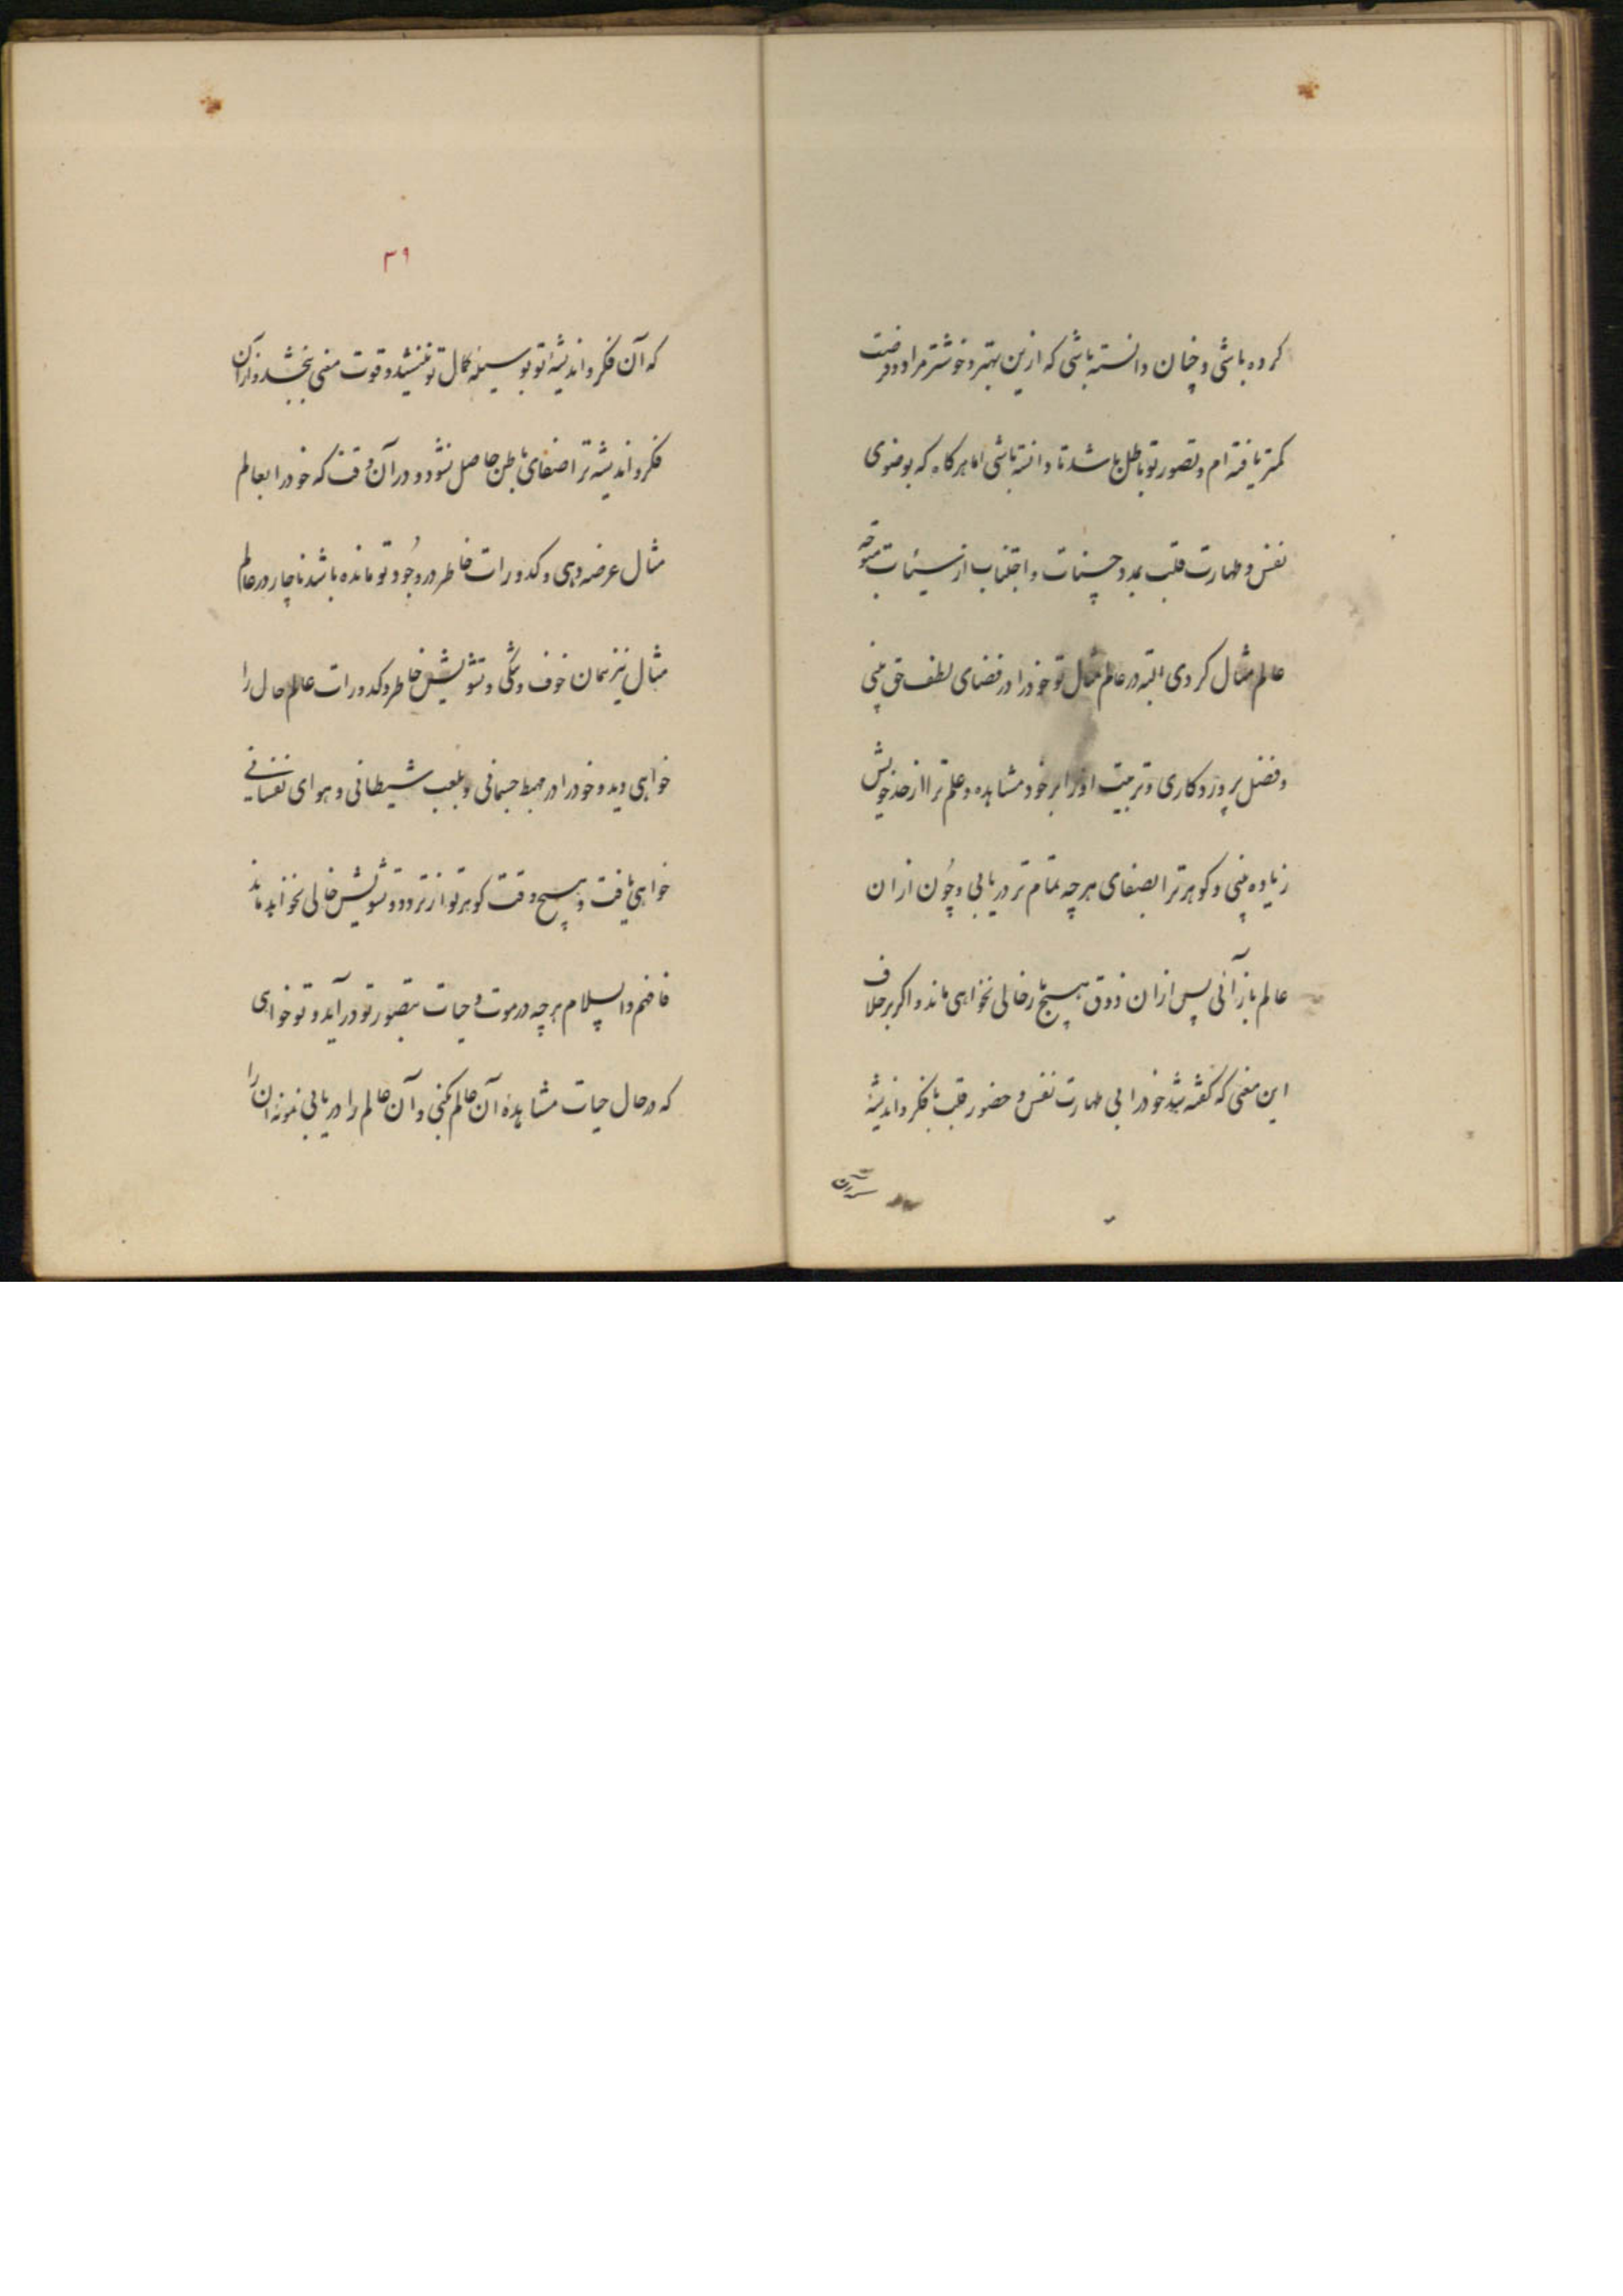 کرده باشی و چنان دانسته باشی که ازین بهتر و خوشتر مراد و فرصت
کمتر یافته ام و تصور تو باطل باشد تا دانسته باشی اما هرگاه که بوضوی
نفس و طهارت قلب بمدد حسنات و اجتناب از سیئات متوجه
عالم مثال کردی البته در عالم مثال تو خود را در فضای لطف حق بینی
و فضل پروردکاری و تربیت او را بر خود مشاهده و علم ترا از حد خویش
زیاده بینی و کوهر ترا بصفای هرچه تمام تر دریابی و چون ازان
عالم باز آئی پس ازان ذوق هیچ بار خالی نخواهی ماند و اکر بر خلاف
این معنی که کفته شد خود را بی طهارت نفس و حضور قلب با فکر و اندیشهٔ
۳۹
که آن فکر و اندیشهٔ تو بوسیلهٔ کمال تو ننشیند و قوت معنی نبخشد و از آن
فکر و اندیشه ترا صفای باطن حاصل نشود و در آن وقت که خود را بعالم
مثال عرضه دهی و کدورات خاطر در وجود تو مانده باشد ناچار در عالم
مثال نیز همان خوف و تنگی و تشویش خاطر و کدورات عالم حال را
خواهی دید و خود را در مهبط جسمانی و ملعب شیطانی و هوای نفسانی
خواهی یافت و هیچ وقت کوهر تو از تردد و تشویش خالی نخواهد ماند
فافهم والسلام هرچه در موت و حیات بتصور تو در آید و تو خواهی
که در حال حیات مشاهدهٔ آن عالم کنی و آن عالم را دریابی نمونهٔ ان را